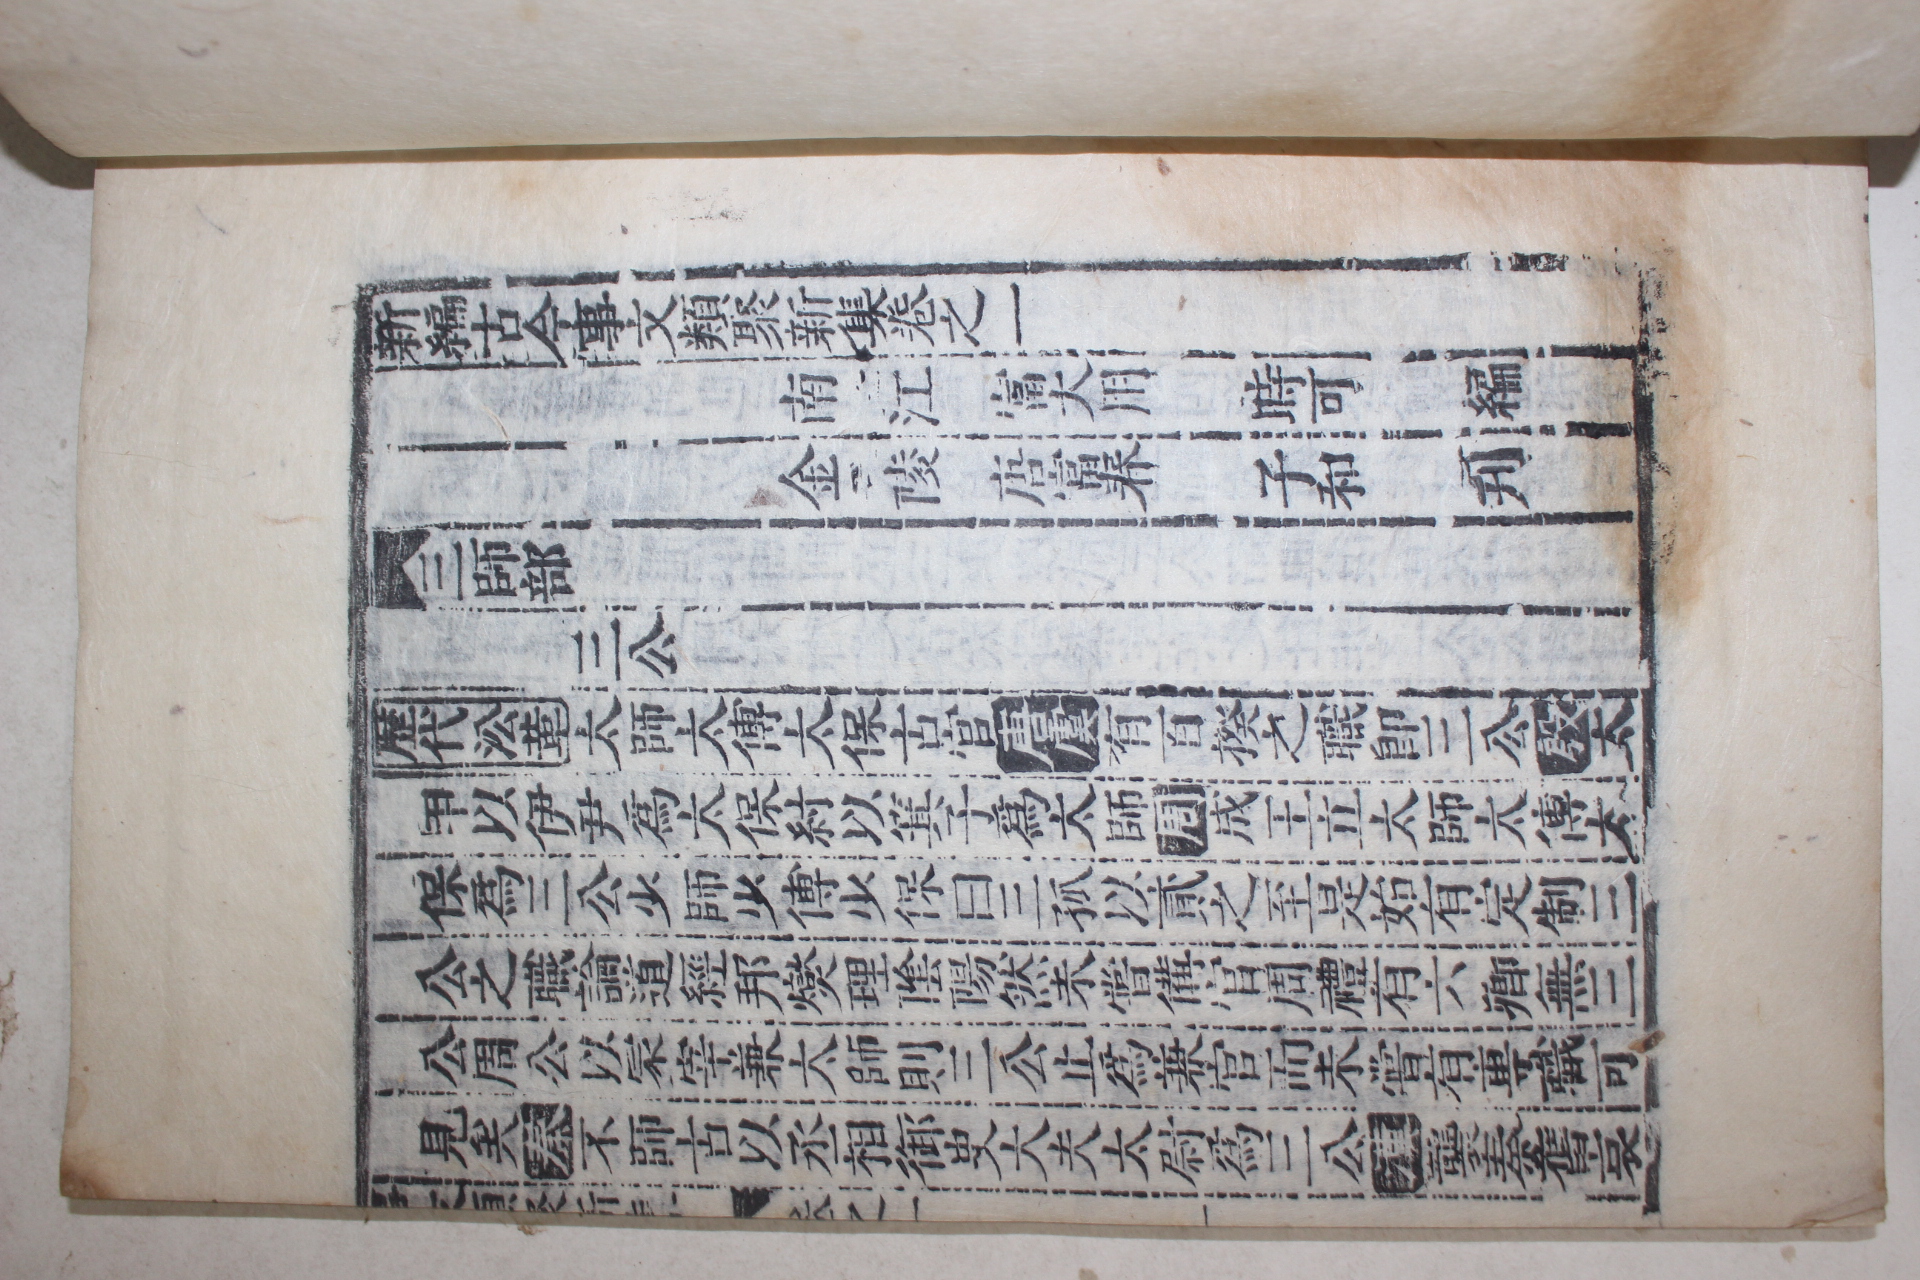 新編古今事文類聚新集卷之一
南江富大用時可編
金陵唐富春子和刋
三師部
三公
歷代沿革太師太傅太保古官唐虞有百揆之職即三公殷太
甲以伊尹爲太保紂以箕子爲太師周成王立太師太傅太
保爲三公少師少傅少保曰三孤以貳之至是始有定制三
公之職論道經邦燮理陰陽然未嘗備官周禮有六卿無三
公周公以冢宰兼太師則三公止爲兼官而未嘗有專職可
見矣秦不師古以丞相御史大夫太尉爲三公漢襲秦舊哀